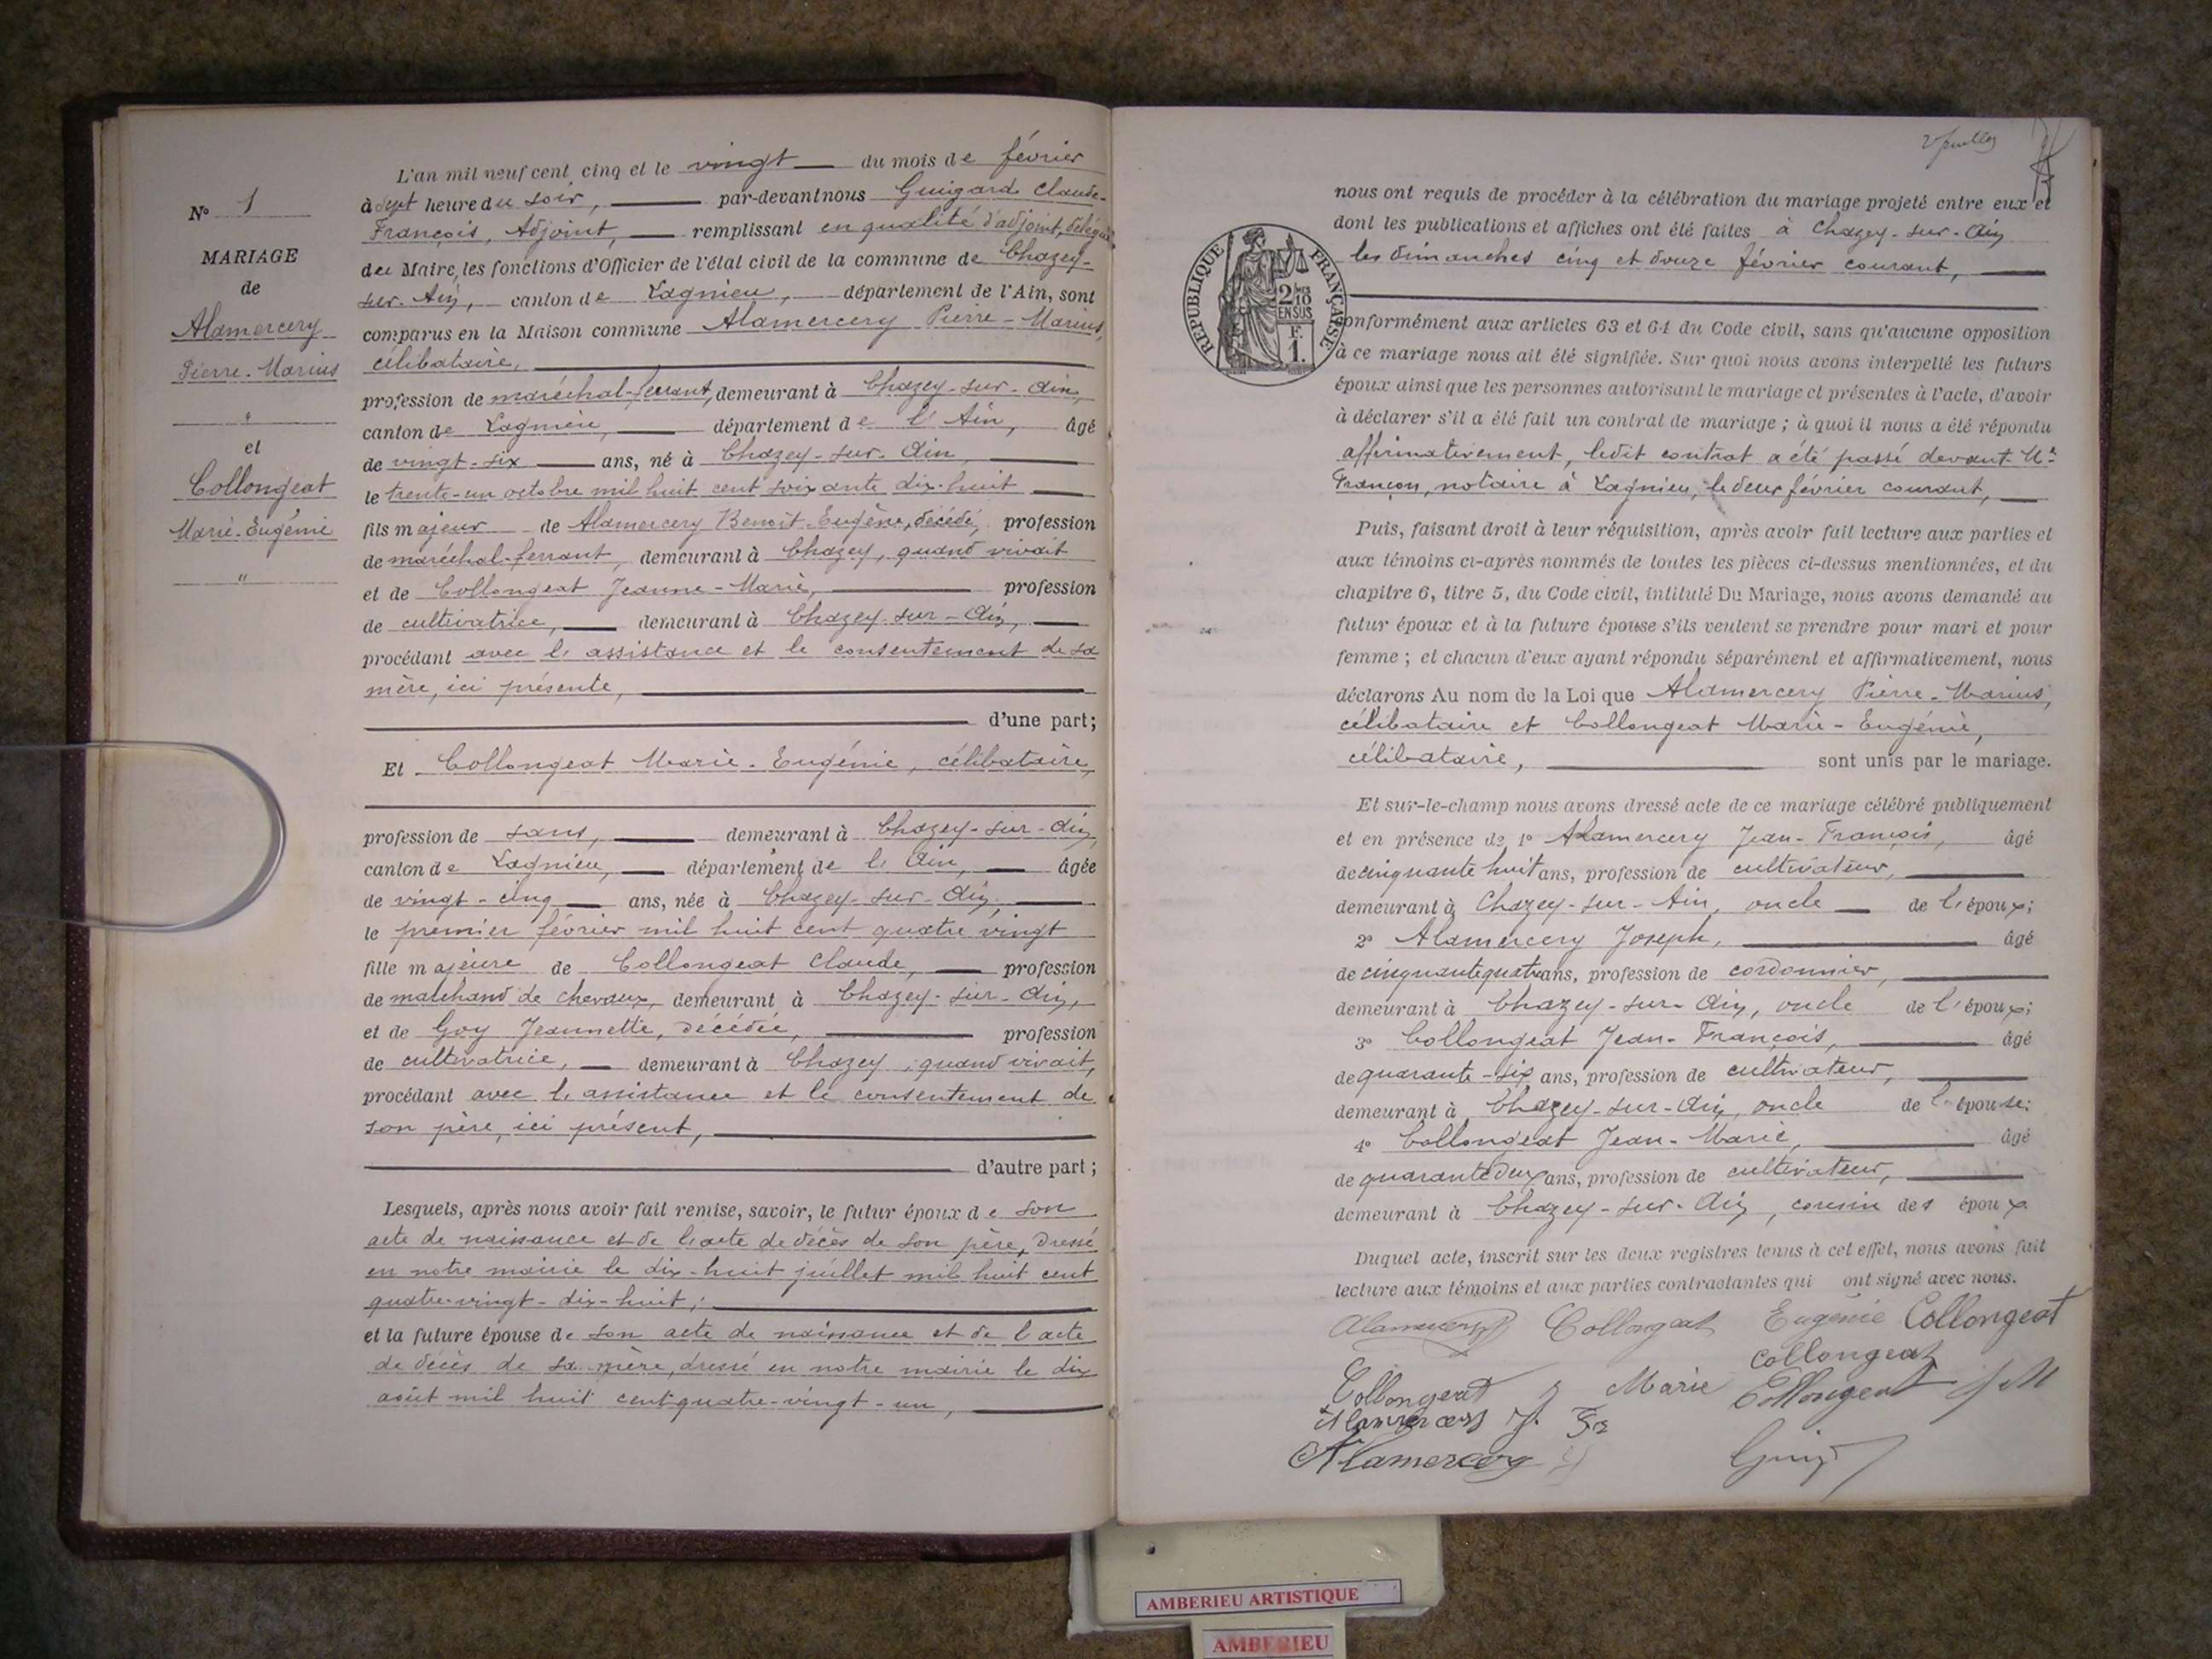 N° 1
MARIAGE
de
Alamercery
Pierre-Marius
"
et
Collongeat
Marie-Eugénie
"
L'an mil neuf cent cinq et le vingt du mois de février
à sept heure du soir, par-devant nous Guigard Claude-
François, Adjoint, remplissant en qualité d'adjoint, délégué
du Maire, les fonctions d'Officier de l'état civil de la commune de Chazey-
sur-Ain, canton de Lagnieu, département de l'Ain, sont
comparus en la Maison commune Alamercery Pierre-Marius,
célibataire,
profession de maréchal-ferrant, demeurant à Chazey-sur-Ain,
canton de Lagnieu, département de l'Ain, âgé
de vingt-six ans, né à Chazey-sur-Ain,
le trente-un octobre mil huit cent soixante dix-huit
fils majeur de Alamercery Benoît-Eugène, décédé, profession
de maréchal-ferrant, demeurant à Chazey, quand vivait
et de Collongeat Jeanne-Marie, profession
de cultivatrice, demeurant à Chazey-sur-Ain,
procédant avec l'assistance et le consentement de sa
mère, ici présente,
d'une part;
Et Collongeat Marie-Eugénie, célibataire,
profession de sans, demeurant à Chazey-sur-Ain,
canton de Lagnieu, département de l'Ain, âgée
de vingt-cinq ans, née à Chazey-sur-Ain,
le premier février mil huit cent quatre vingt
fille majeure de Collongeat Claude, profession
de marchand de chevaux, demeurant à Chazey-sur-Ain,
et de Goy Jeannette, décédée, profession
de cultivatrice, demeurant à Chazey, quand vivait,
procédant avec l'assistance et le consentement de
son père, ici présent,
d'autre part;
Lesquels, après nous avoir fait remise, savoir, le futur époux de son
acte de naissance et de l'acte de décès de son père, dressé
en notre mairie le dix-huit juillet mil huit cent
quatre-vingt-dix-huit;
et la future épouse de son acte de naissance et de l'acte
de décès de sa mère, dressé en notre mairie le dix
août mil huit cent quatre-vingt-un,
nous ont requis de procéder à la célébration du mariage projeté entre eux et
dont les publications et affiches ont été faites à Chazey-sur-Ain
les dimanches cinq et douze février courant,
REPUBLIQUE FRANÇAISE
2/10
EN SUS
F.
1.
conformément aux articles 63 et 64 du Code civil, sans qu'aucune opposition
à ce mariage nous ait été signifiée. Sur quoi nous avons interpellé les futurs
époux ainsi que les personnes autorisant le mariage et présentes à l'acte, d'avoir
à déclarer s'il a été fait un contrat de mariage; à quoi il nous a été répondu
affirmativement, ledit contrat a été passé devant Me
Françon, notaire à Lagnieu, le deux février courant,
Puis, faisant droit à leur réquisition, après avoir fait lecture aux parties et
aux témoins ci-après nommés de toutes les pièces ci-dessus mentionnées, et du
chapitre 6, titre 5, du Code civil, intitulé Du Mariage, nous avons demandé au
futur époux et à la future épouse s'ils veulent se prendre pour mari et pour
femme; et chacun d'eux ayant répondu séparément et affirmativement, nous
déclarons Au nom de la Loi que Alamercery Pierre-Marius,
célibataire et Collongeat Marie-Eugénie,
célibataire, sont unis par le mariage.
Et sur-le-champ nous avons dressé acte de ce mariage célébré publiquement
et en présence de 1° Alamercery Jean-François, âgé
de cinquante huit ans, profession de cultivateur,
demeurant à Chazey-sur-Ain, oncle de l'époux;
2° Alamercery Joseph, âgé
de cinquante quatre ans, profession de cordonnier,
demeurant à Chazey-sur-Ain, oncle de l'époux;
3° Collongeat Jean-François, âgé
de quarante-six ans, profession de cultivateur,
demeurant à Chazey-sur-Ain, oncle de l'épouse;
4° Collongeat Jean-Marie, âgé
de quarante deux ans, profession de cultivateur,
demeurant à Chazey-sur-Ain, cousin des époux
Duquel acte, inscrit sur les deux registres tenus à cet effet, nous avons fait
lecture aux témoins et aux parties contractantes qui ont signé avec nous.
Alamercery Collongeat Eugénie Collongeat
Collongeat
Collongeat J Marie Collongeat J M
Alamercery J. Fs
Alamercery
AMBERIEU ARTISTIQUE
AMBERIEU